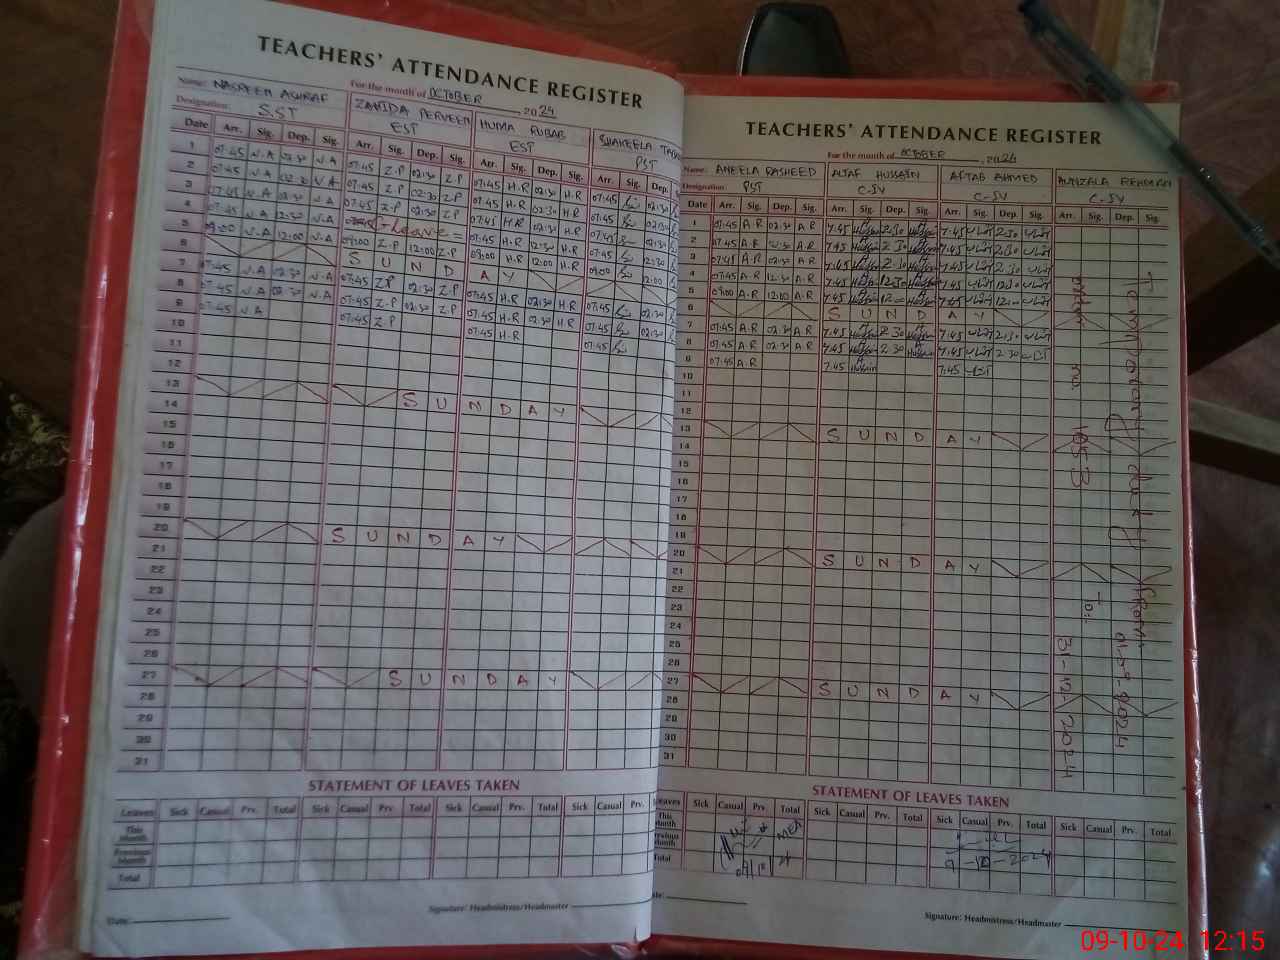 TEACHERS' ATTENDANCE REGISTER
For the month of OCTOBER, 2024
Name: NASREEN ASHRAF ZAHIDA PERVEEN HUMA RUBAB SHAKEELA
Designation: S.ST EST EST PST
Date Arr. Sig. Dep. Sig. Arr. Sig. Dep. Sig. Arr. Sig. Dep. Sig. Arr. Sig. Dep.
1 07:45 N.A 02:30 N.A 07:45 Z.P 02:30 Z.P 07:45 H.R 02:30 H.R 07:45 02:30
2 07:45 N.A 02:30 N.A 07:45 Z.P 02:30 Z.P 07:45 H.R 02:30 H.R 07:45 02:30
3 07:45 N.A 02:30 N.A 07:45 Z.P 02:30 Z.P 07:45 H.R 02:30 H.R 07:45 02:30
4 07:45 N.A 12:30 N.A Leave 07:45 H.R 12:30 H.R 07:45 12:30
5 08:00 N.A 12:00 N.A 08:00 Z.P 12:00 Z.P 08:00 H.R 12:00 H.R 08:00 12:00
6 S U N D A Y
7 07:45 N.A 02:30 N.A 07:45 Z.P 02:30 Z.P 07:45 H.R 02:30 H.R 07:45 02:30
8 07:45 N.A 02:30 N.A 07:45 Z.P 02:30 Z.P 07:45 H.R 02:30 H.R 07:45 02:30
9 07:45 N.A 07:45 Z.P 07:45 H.R 07:45
10
11
12
13 S U N D A Y
14
15
16
17
18
19
20 S U N D A Y
21
22
23
24
25
26
27 S U N D A Y
28
29
30
31
STATEMENT OF LEAVES TAKEN
Leaves Sick Casual Prv. Total Sick Casual Prv. Total Sick Casual Prv. Total Sick Casual Prv.
This Month
Previous Month
Total
Date:
Signature: Headmistress/Headmaster
TEACHERS' ATTENDANCE REGISTER
For the month of OCTOBER, 2024
Name: ANEELA RASHEED ALTAF HUSSAIN AFTAB AHMED HUNZALA REHMAN
Designation: PST C-IV C-IV C-IV
Date Arr. Sig. Dep. Sig. Arr. Sig. Dep. Sig. Arr. Sig. Dep. Sig. Arr. Sig. Dep. Sig.
1 07:45 A.R 02:30 A.R 7.45 2.30 7.45 2.30
2 07:45 A.R 02:30 A.R 7.45 2.30 7.45 2.30
3 07:45 A.R 02:30 A.R 7.45 2.30 7.45 2.30
4 07:45 A.R 12:30 A.R 7.45 12.30 7.45 12.30
5 08:00 A.R 12:00 A.R 7.45 12.00 7.45 12.00
6 S U N D A Y
7 07:45 A.R 02:30 A.R 7.45 2.30 7.45 2.30
8 07:45 A.R 02:30 A.R 7.45 2.30 7.45 2.30
9 07:45 A.R 7.45 7.45
10
11
12
13 S U N D A Y
14
15
16
17
18
19
20 S U N D A Y
21
22
23
24
25
26
27 S U N D A Y
28
29
30
31
Temporary duty From
order no 1053 To: 31-12-2024
STATEMENT OF LEAVES TAKEN
Leaves Sick Casual Prv. Total Sick Casual Prv. Total Sick Casual Prv. Total Sick Casual Prv. Total
This Month
Previous Month
Total
MEA
9-10-2024
Date:
Signature: Headmistress/Headmaster
09-10-24 12:15